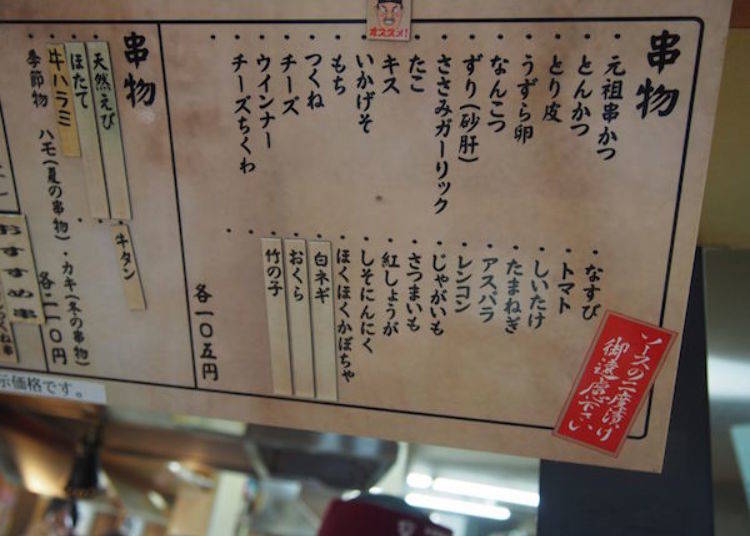 オススメ!
串物
・元祖串かつ
・とんかつ
・とり皮
・うずら卵
・なんこつ
・ずり(砂肝)
・ささみガーリック
・たこ
・キス
・いかげそ
・もち
・つくね
・チーズ
・ウインナー
・チーズちくわ
・なすび
・トマト
・しいたけ
・たまねぎ
・アスパラ
・レンコン
・じゃがいも
・さつまいも
・紅しょうが
・しそにんにく
・ほくほくかぼちゃ
・白ネギ
・おくら
・竹の子
各一〇五円
ソースの二度漬け
御遠慮下さい
串物
・天然えび
・ほたて
・牛ハラミ
・牛タン
季節物 ハモ(夏の串物)・カキ(冬の串物)
各二一〇円
おすすめ串
示価格です。